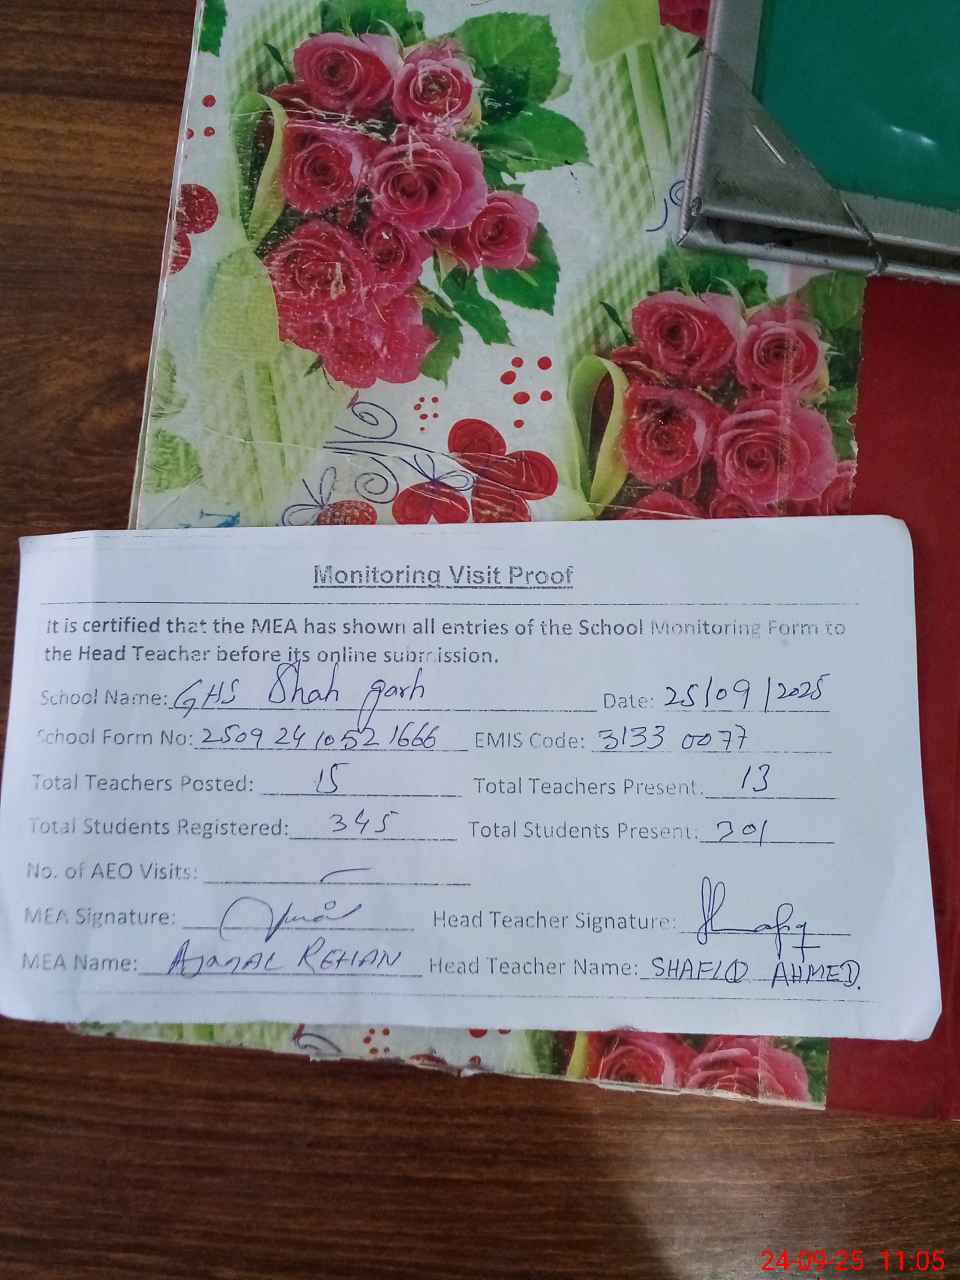 Monitoring Visit Proof
It is certified that the MEA has shown all entries of the School Monitoring Form to
the Head Teacher before its online submission.
School Name: GHS Shah garh Date: 25/09/2025
School Form No: 2509 24 1052 1666 EMIS Code: 3133 0077
Total Teachers Posted: 15 Total Teachers Present: 13
Total Students Registered: 345 Total Students Present: 301
No. of AEO Visits: —
MEA Signature: Head Teacher Signature: Shafiq
MEA Name: AJMAL REHAN Head Teacher Name: SHAFIQ AHMED.
24-09-25 11:05